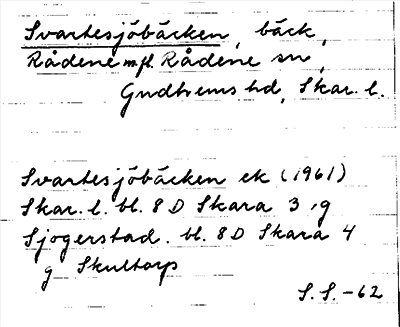 Svartesjöbäcken, bäck,
Rådene m fl. Rådene sn,
Gudhems hd, Skar. l.
Svartesjöbäcken ek (1961)
Skar. l. bl. 8 D Skara 3 g
Sjogerstad. bl. 8 D Skara 4
g Skultorp
S. S. -62